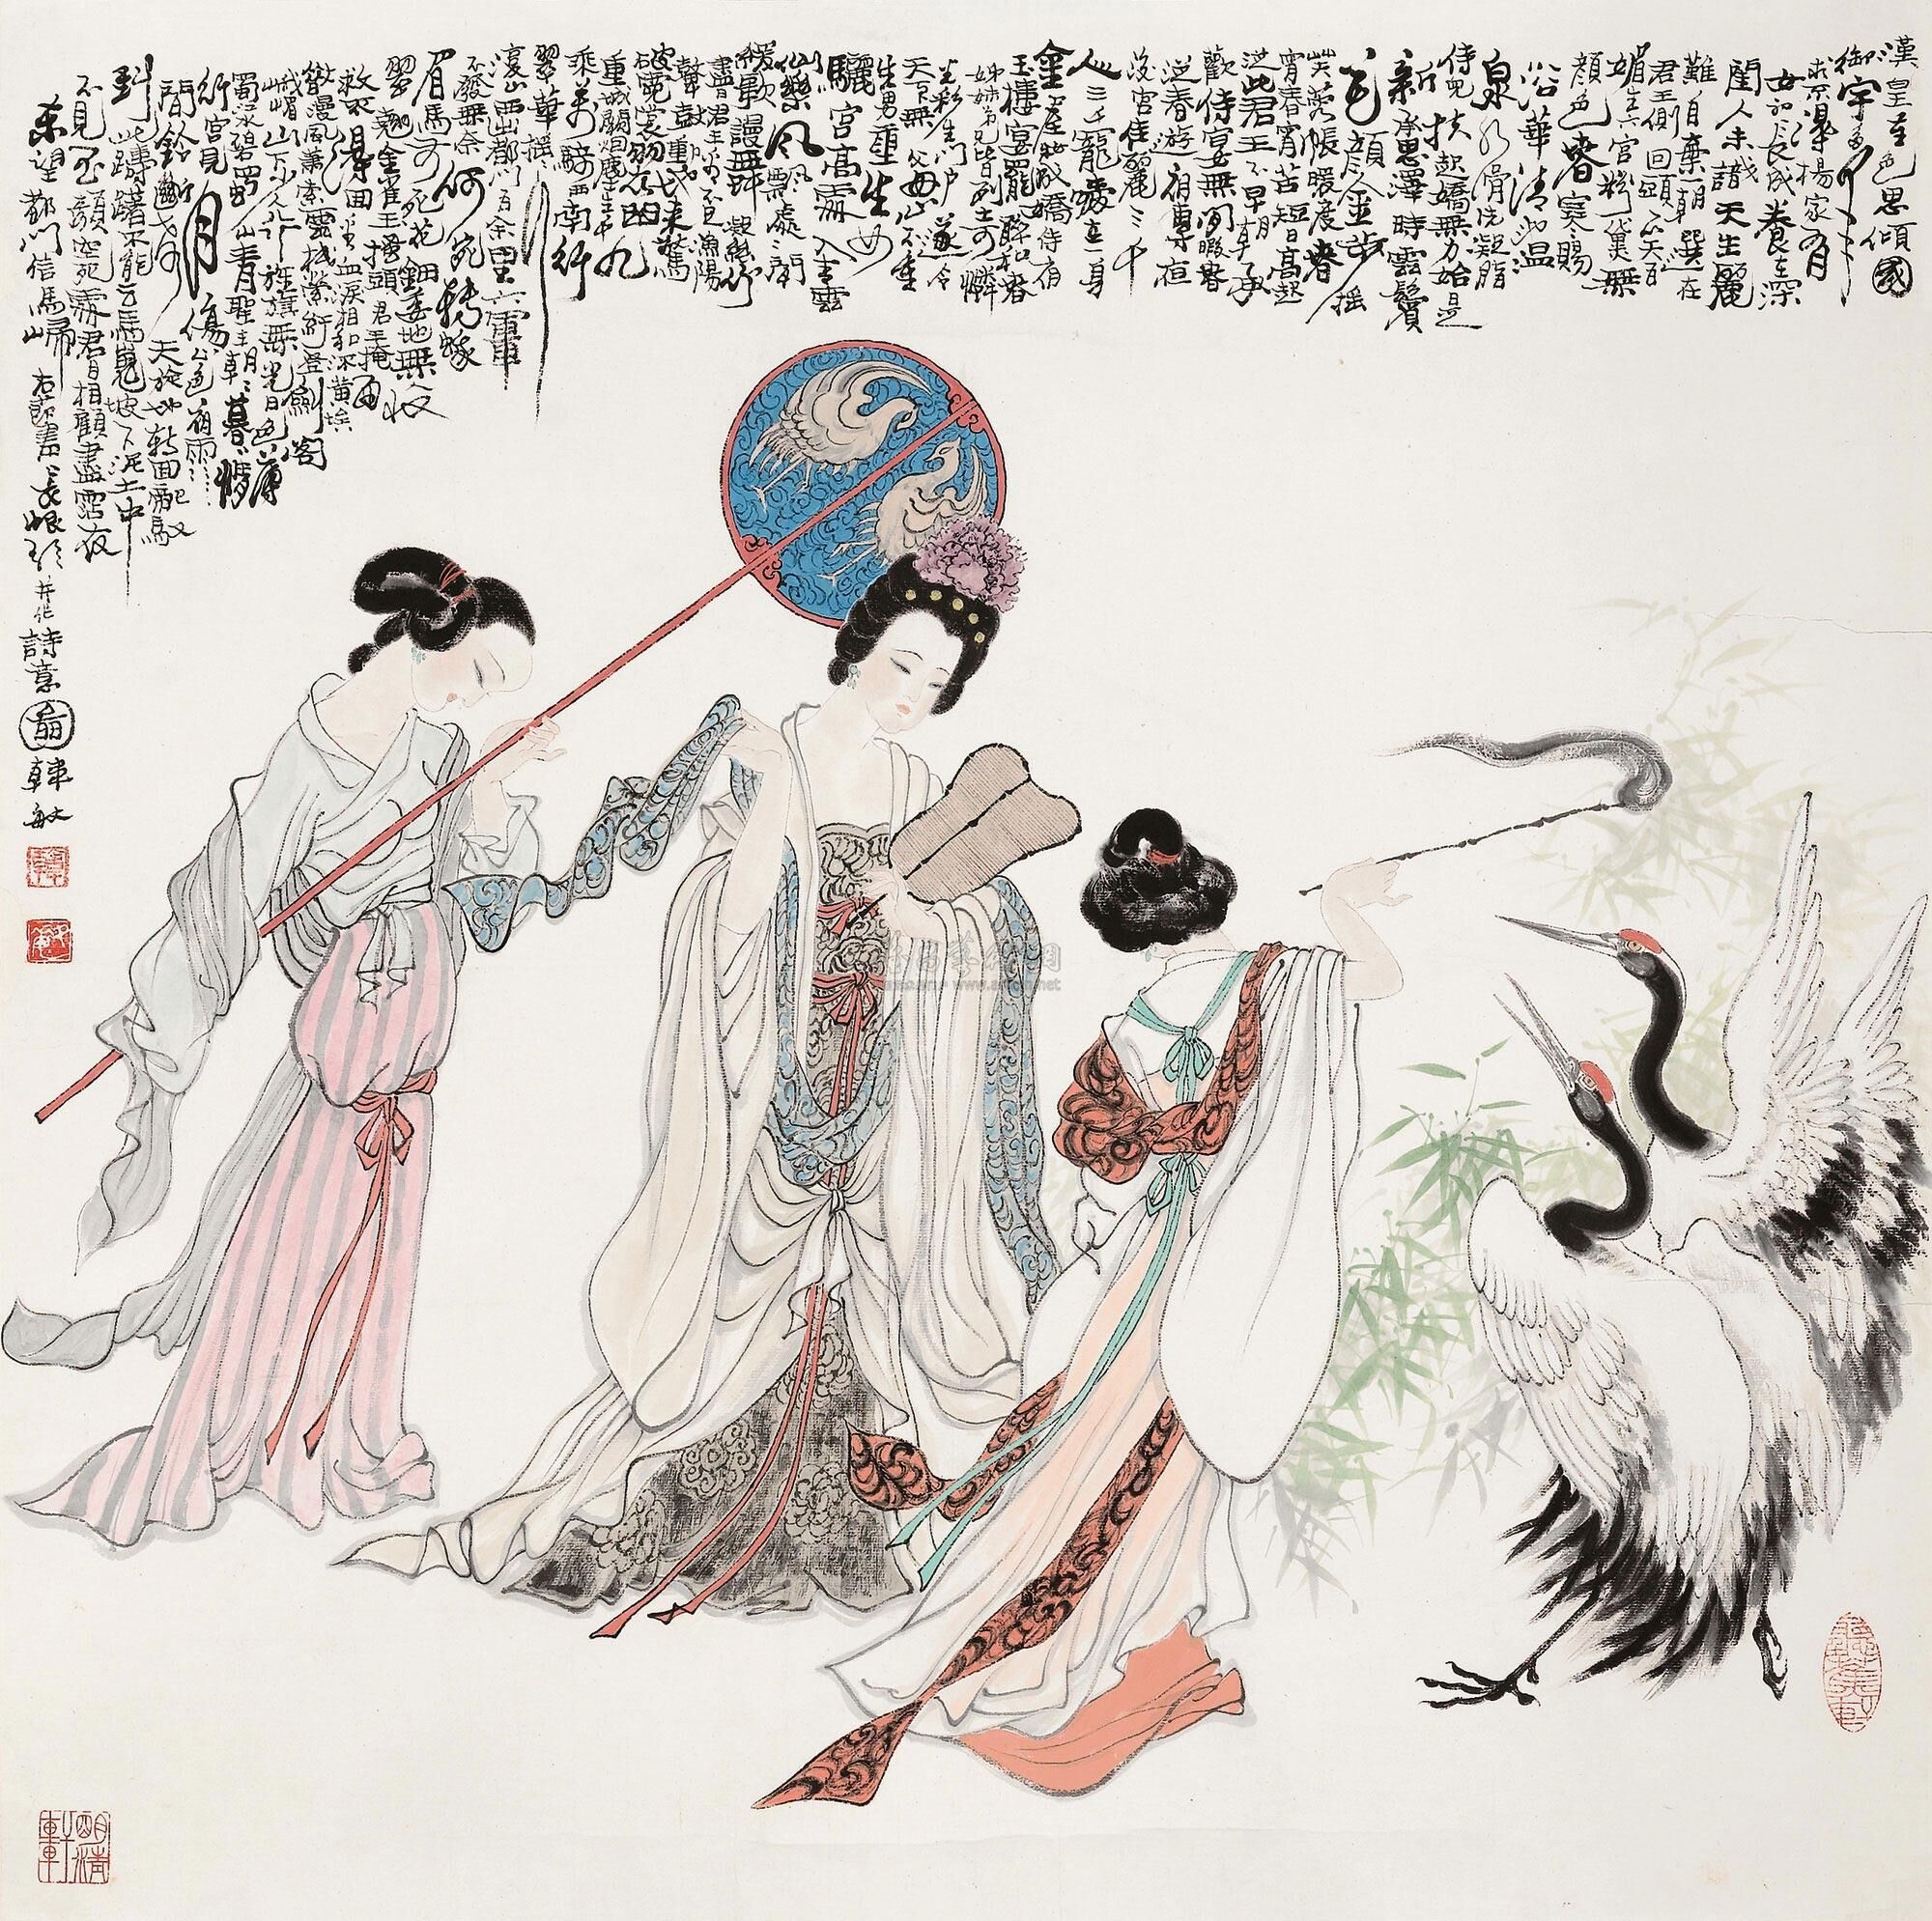 漢皇重色思傾國
御宇多年
求不得楊家有
女初長成養在深
閨人未識天生麗
難自棄一朝選在
君王側回頭一笑百
媚生六宮粉黛無
顏色春寒賜
浴華清池温
泉水滑洗凝脂
侍兒扶起嬌無力始是
新承恩澤時雲鬢
花顏金步搖
芙蓉帳暖度春
宵春宵苦短日高起
從此君王不早朝承
歡侍宴無閒暇春
從春遊夜專夜
後宮佳麗三千
人三千寵愛在一身
金屋妝成嬌侍夜
玉樓宴罷醉和春
姊妹弟兄皆列土可憐
光彩生門户遂令
天下父母心不重
生男重生女
驪宮高處入青雲
仙樂風飄處處聞
緩歌謾舞凝絲竹
盡日君王看不足漁陽
鼙鼓動地來驚
破霓裳羽衣曲九
重城闕煙塵生千
乘萬騎西南行
翠華搖搖行
復止西出都門百余里六軍
不發無奈何宛轉蛾
眉馬前死花鈿委地無人收
翠翹金雀玉搔頭君王掩面
救不得回看血淚相和流黃埃
散漫風蕭索雲棧縈紆登劍閣
峨嵋山下少人行旌旗無光日色薄
蜀江水碧蜀山青聖主朝朝暮暮情
行宮見月傷心色夜雨
聞鈴腸斷聲天旋地轉回龍馭
到此躊躇不能去馬嵬坡下泥土中
不見玉顏空死處君臣相顧盡霑衣
東望都門信馬歸 右節書長恨歌并作詩意 韓敏